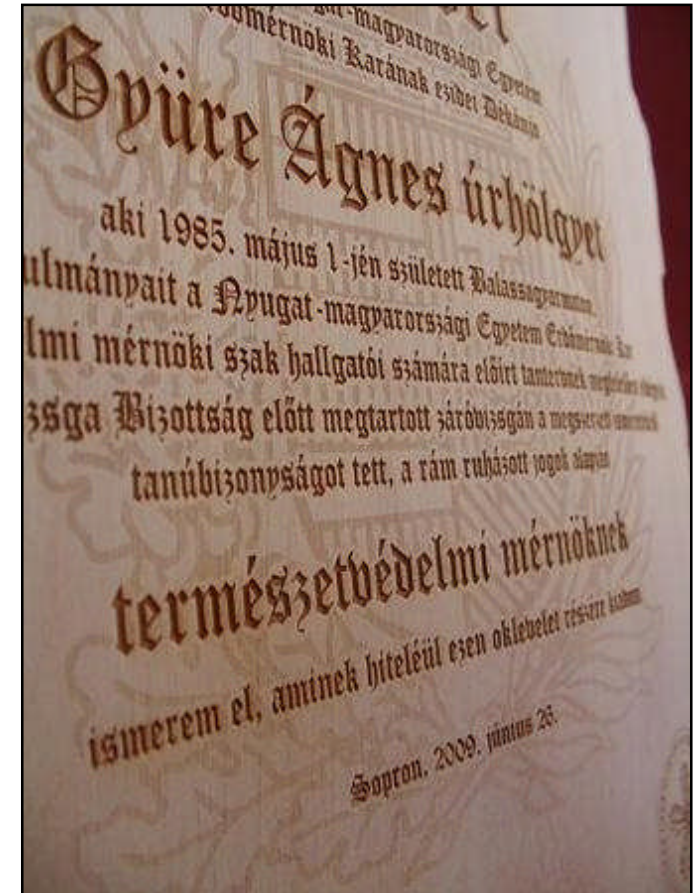 Nyugat-magyarországi Egyetem
Erdőmérnöki Karának ezidei Dékánja
Gyüre Ágnes úrhölgyet
aki 1985. május 1-jén született Balassagyarmaton,
ulmányait a Nyugat-magyarországi Egyetem Erdőmérnöki Kar
lmi mérnöki szak hallgatói számára előírt tantervnek megfelelően
zsga Bizottság előtt megtartott záróvizsgán a megszerzett ismeretek
tanúbizonyságot tett, a rám ruházott jogok alapján
természetvédelmi mérnöknek
ismerem el, aminek hiteléül ezen oklevelet részére kiadom.
Sopron, 2009. június 26.